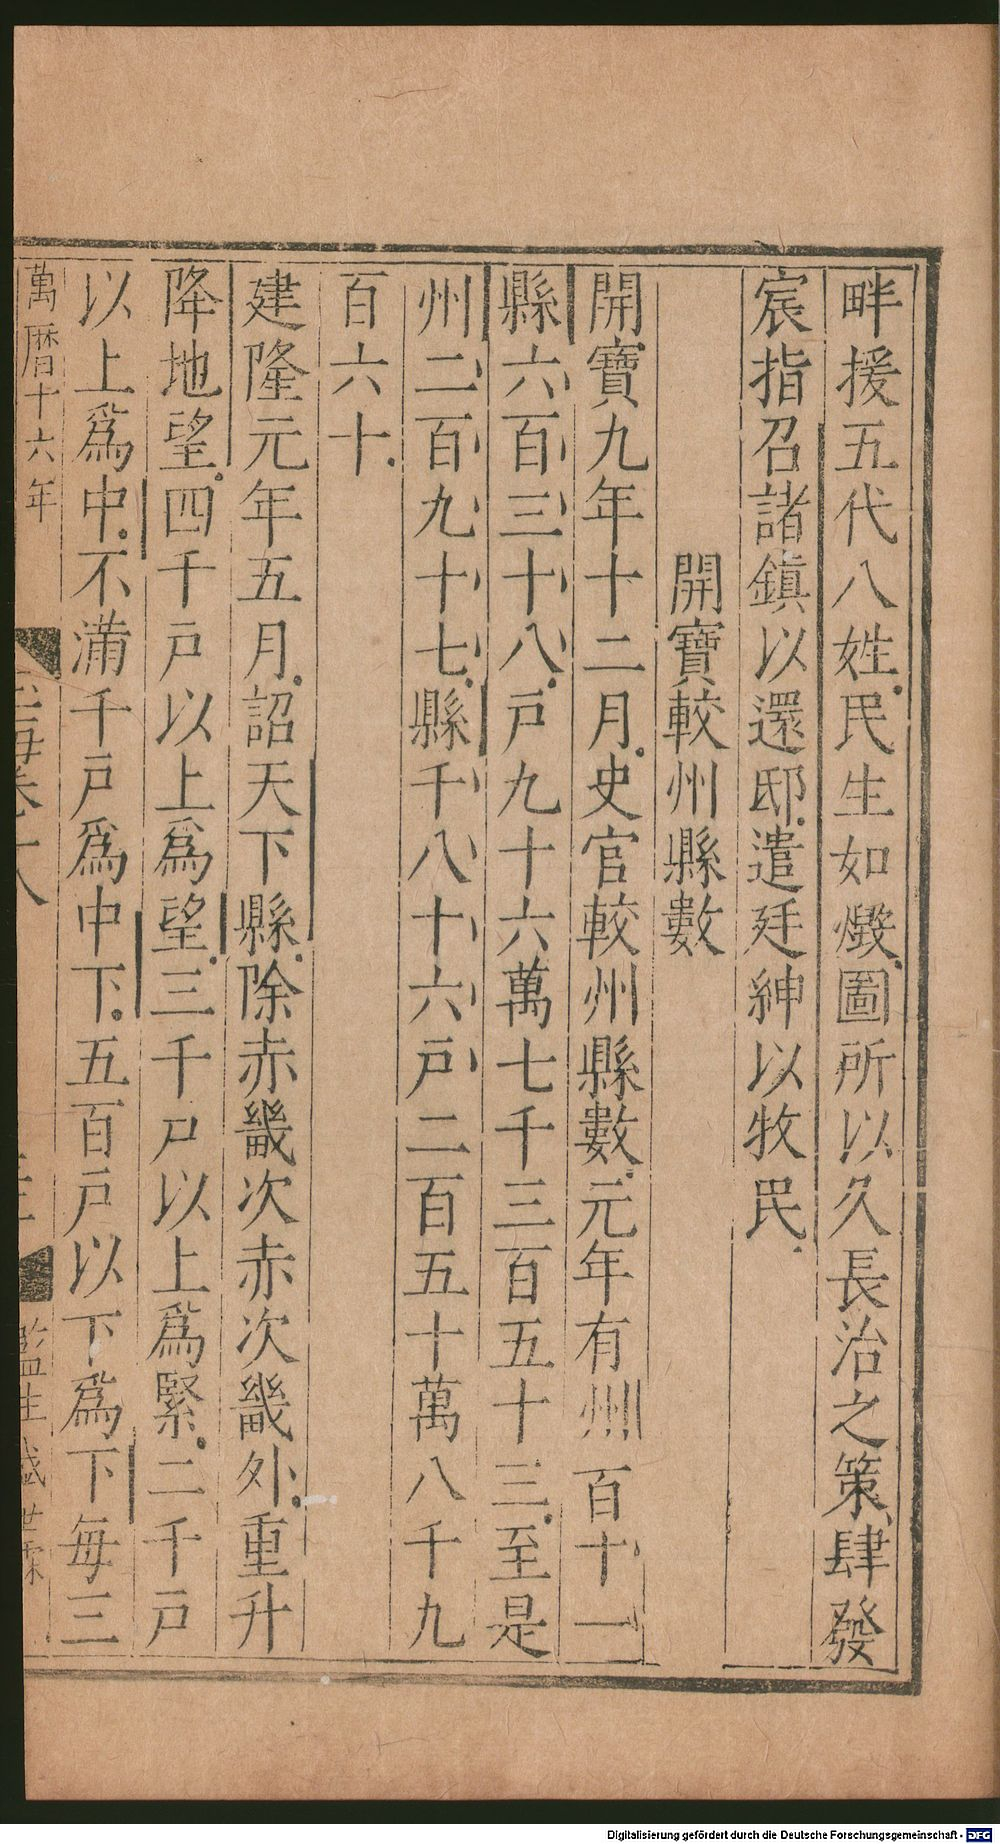 畔援五代八姓民生如燬圖所以久長治之策肆發
宸指召諸鎮以還邸遣廷紳以牧民
開寶較州縣數
開寶九年十二月史官較州縣數元年有州百十一
縣六百三十八戸九十六萬七千三百五十三至是
州二百九十七縣千八十六戸二百五十萬八千九
百六十
建隆元年五月詔天下縣除赤畿次赤次畿外重升
降地望四千戸以上爲望三千戸以上爲緊二千戸
以上爲中不滿千戸爲中下五百戸以下爲下每三
萬曆十六年
玉海卷十八
監生盛世霖
Digitalisierung gefördert durch die Deutsche Forschungsgemeinschaft - DFG